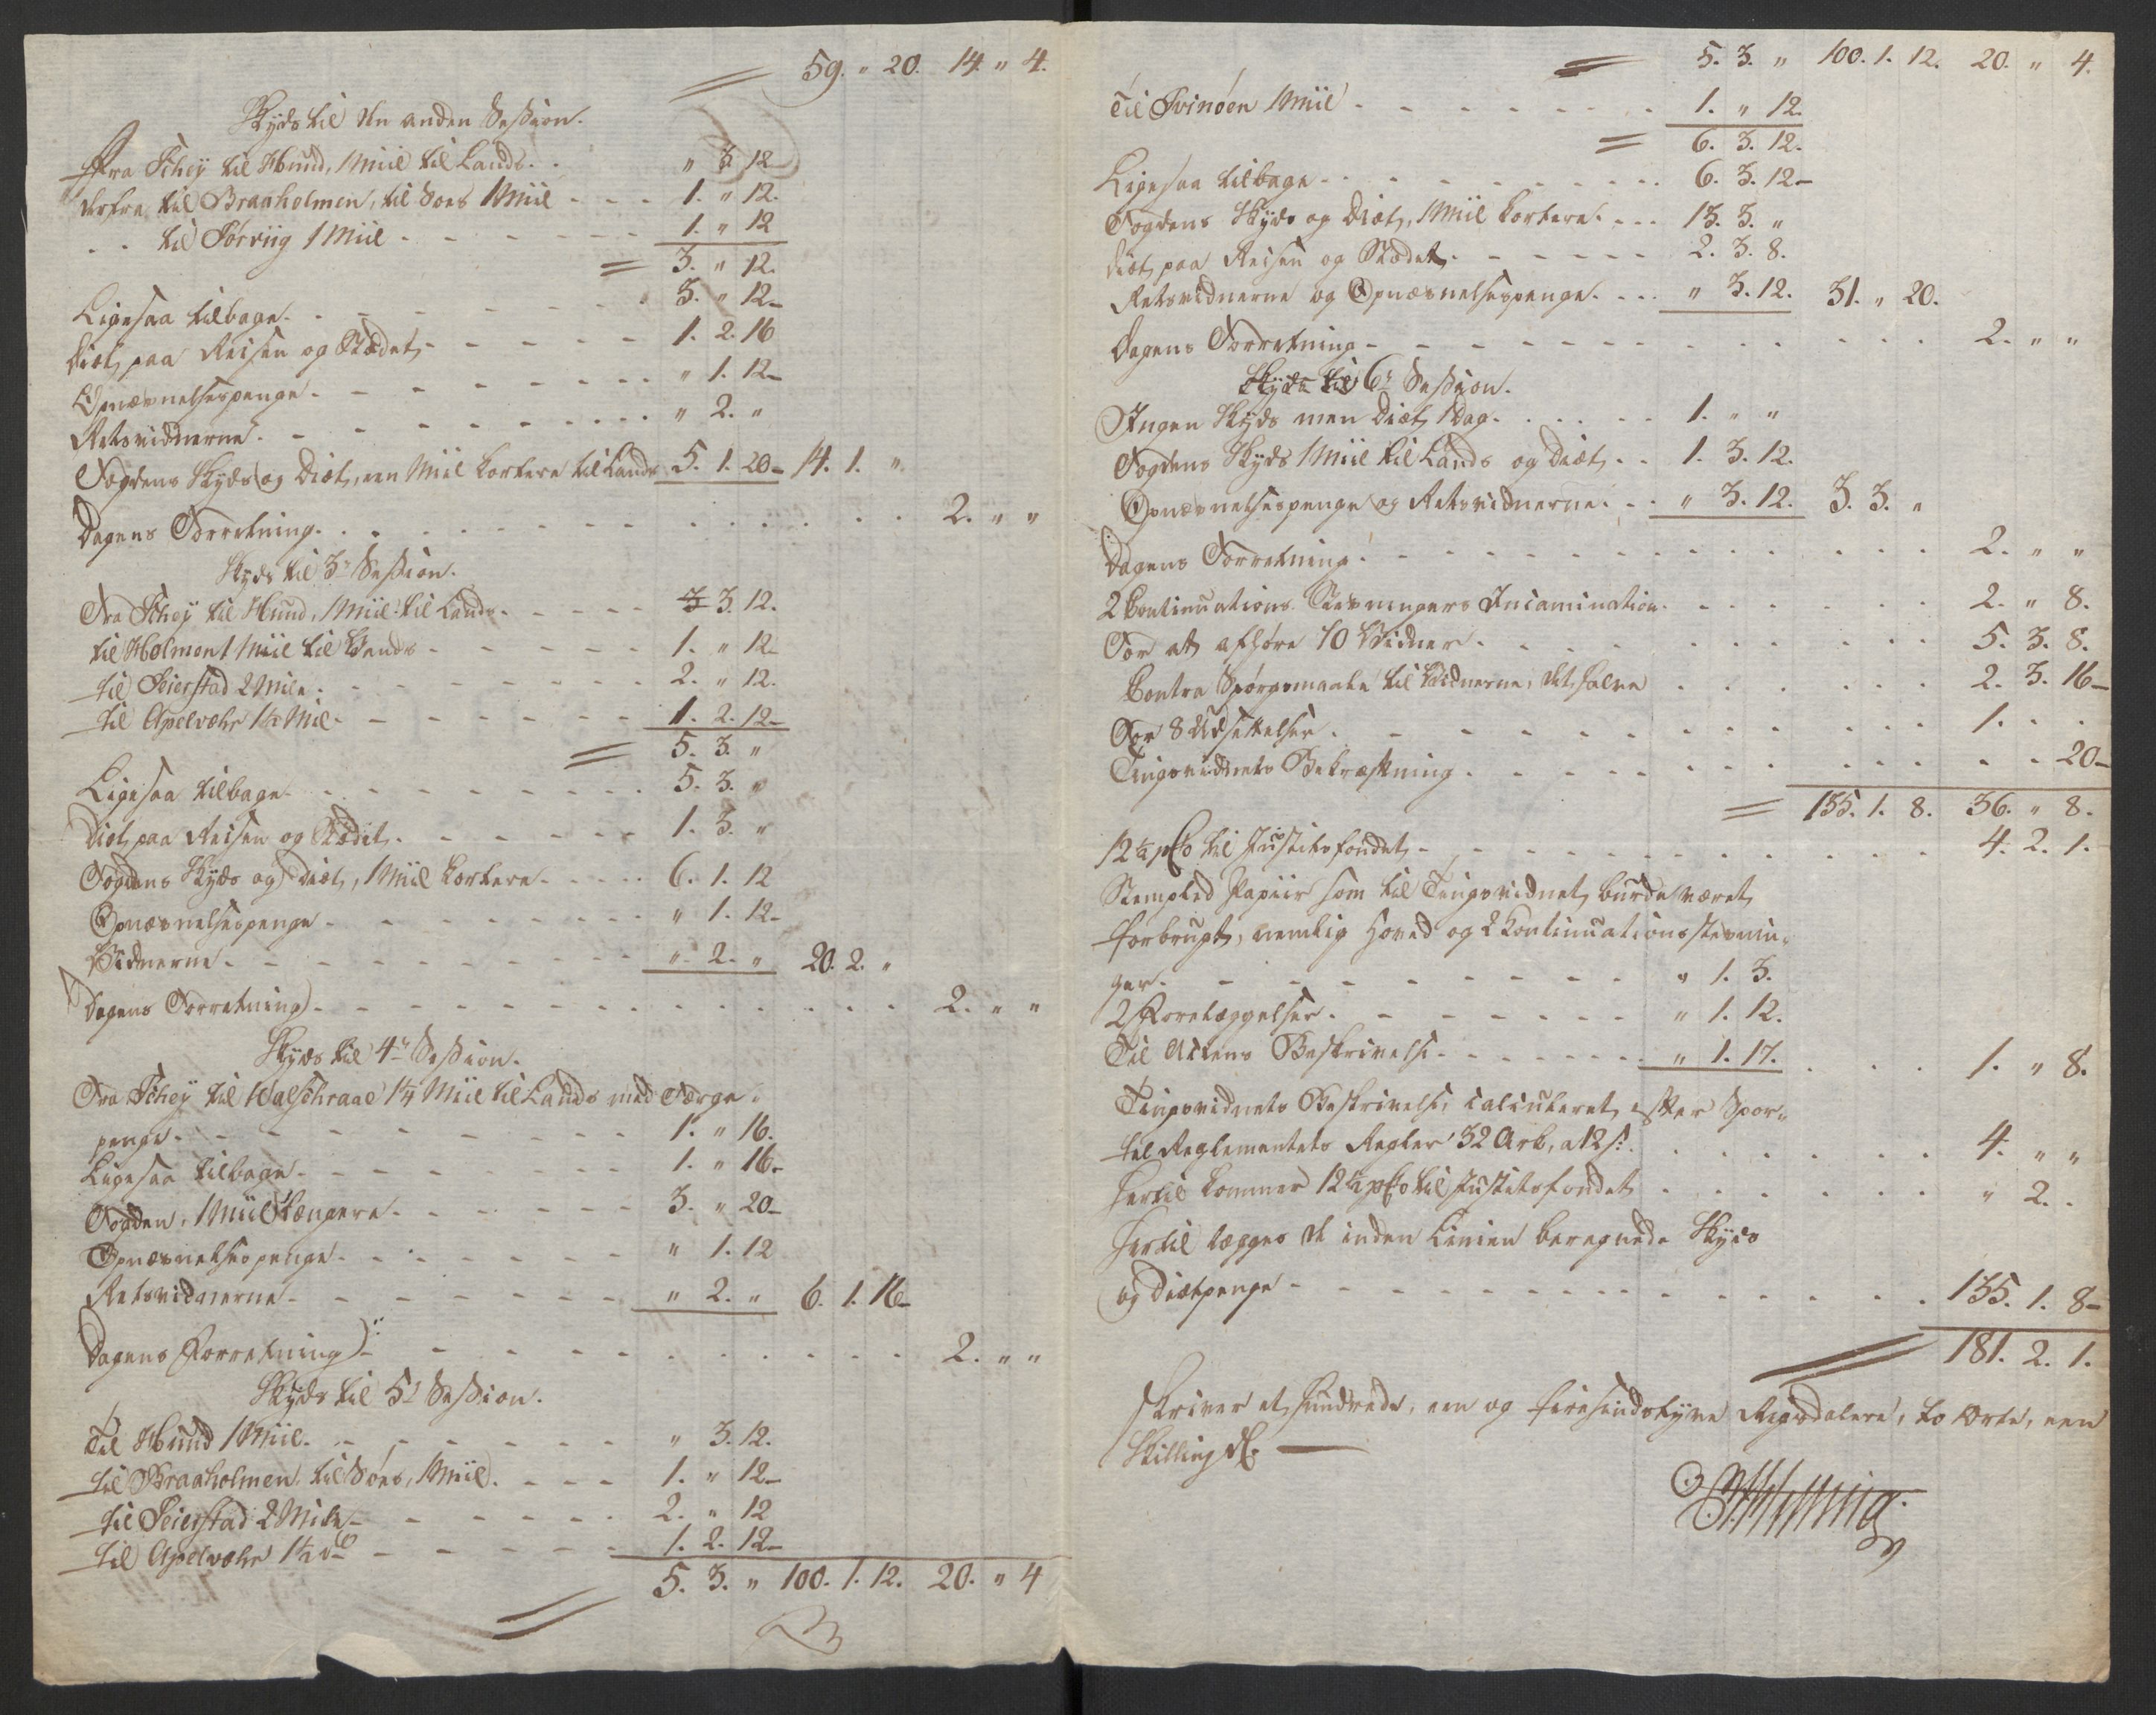 59. " 20. 14. " 4.
Skyds til den anden Session.
Fra Fehey til Hund, 1 Miil til Lands. " 3. 12
derfra til Braaholmen, til Søes 1 Miil - - - 1. " 12.
- - til Førviig 1 Miil - - - 1. " 12
3. " 12.
Ligesaa tilbage. - - - 3. " 12
Diæt paa Reisen og Stædet - - - 1. 2. 16
Opnævnelsespenge. - - - " 1. 12
Retsvidnerne. - - - " 2. "
Fogdens Skyds og Diæt, een Miil kortere til Lands 5. 1. 20 14. 1. "
Dagens Forretning. - - - 2. " "
Skyds til 3die Session.
Fra Fehey til Hund, 1 Miil til Lands. - - - 3. 12.
til Holmen 1 Miil til Vands - - - 1. " 12
til Feierstad 2 Mile. - - - 2. " 12.
til Apelvæhr 1½ Mil. - - - 1. 2. 12
5. 3. "
Ligesaa tilbage - - - 5. 3. "
Diæt paa Reisen og Stædet. - - - 1. 3. "
Fogdens Skyds og Diæt, 1 Miil kortere. - - - 6. 1. 12
Opnævnelsespenge - - - " 1. 12
Vidnerne. - - - " 2. " 20. 2. "
Dagens Forretning. - - - 2. " "
Skyds til 4de Session.
Fra Fehey til 1¼ Miil til Lands med Færge-
penge. - - - 1. " 16.
Ligesaa tilbage. - - - 1. " 16
Fogden, 1 Miil længere. - - - 3. " 20
Opnævnelsespenge. - - - " 1. 12
Retsvidnerne. - - - " 2. " 6. 1. 16
Dagens Forretning - - - 2. " "
Skyds til 5te Session.
Til Hund 1 Miil. - - - " 3. 12.
til Braaholmen, til Søes, 1 Miil. - - - 1. " 12
til Feierstad 2 Mile - - - 2. " 12
til Apelvæhr 1½ do - - - 1. 2. 12
5. 3. " 100. 1. 12. 20. " 4
5. 3. " 100. 1. 12. 20. " 4.
Til Svinøen 1 Miil - - - 1. " 12.
6. 3. 12.
Ligesaa tilbage - - - 6. 3. 12
Fogdens Skyds og Diæt, 1 Miil kortere. - - - 13. 3. "
Diæt paa Reisen og Stædet. - - - 2. 3. 8.
Retsvidnerne og Opnævnelsespenge. - - - " 3. 12. 31. " 20.
Dagens Forretning - - - 2. " "
Skyds til 6te Session.
Ingen Skyds men Diæt 1 Dag. - - - 1. " "
Fogdens Skyds 1 Miil til Lands og Diæt - - 1. 3. 12.
Opnævnelsespenge og Retsvidnerne. - - " 3. 12. 3. 3. "
Dagens Forretning. - - - 2. " "
2 Continuations Stevningers Incamination. - - - 2. " 8.
For at afhøre 10 Vidner. - - - 5. 3. 8.
Contra Spørgsmaale til Vidnerne, det halve - - - 2. 3. 16
For 8 Udsettelser. - - - 1. - -
Tingsvidnets Bekræftning. - - - 20
155. 1. 8. 36. " 8.
12½ pCto til Justitsfondet - - - 4. 2. 1.
Stempled Papiir som til Tingsvidnet burde været
forbrugt, nemlig Hoved og 2 Continuationsstevnin-
ger. - - - " 1. 3.
2 Forelæggelser. - - - " 1. 12.
Til Actens Beskrivelse - - - " 1. 17. 1. " 8.
Tingsvidnets Beskrivelse, calculeret efter Spor-
tel Reglementets Regler 32 Ark, a 12 s. - - - 4. " "
Hertil kommer 12½ pCto til Justitsfondet - - - " 2. -
Hertil lægges de inden Linien beregnede Skyds
og Diætpenge - - - 135. 1. 8
181. 2. 1.
skriver et Hundrede, een og firesindstyve Rigsdalere, to Orte, een
Skilling